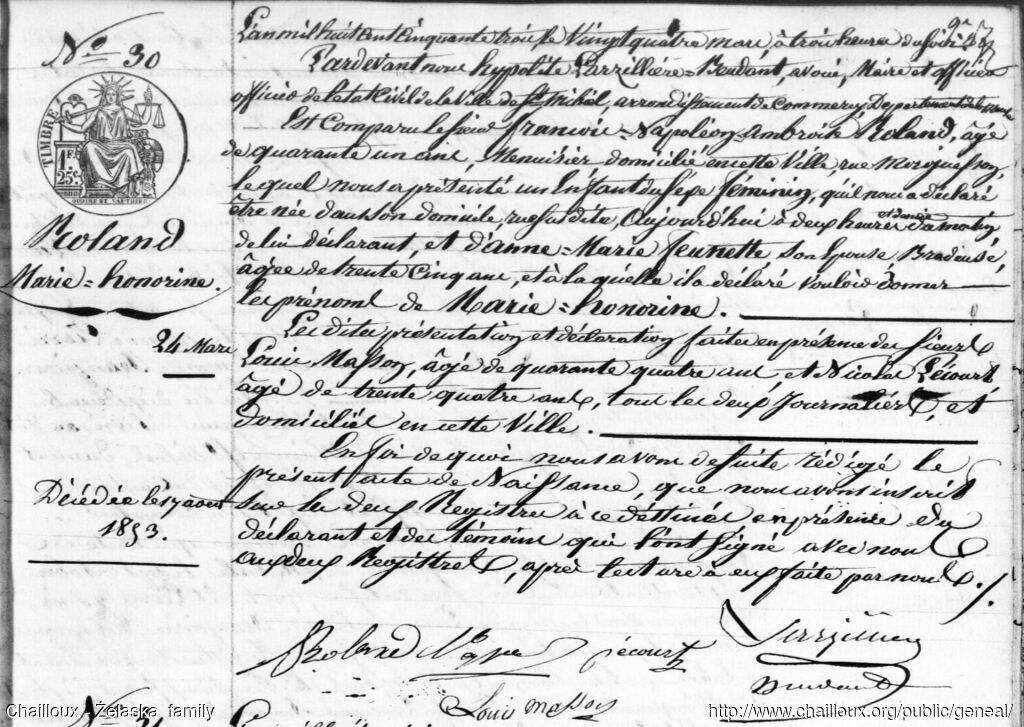 Nº 30
TIMBRE
1 F.
25 C.
Roland
Marie=honorine.
24 Mars
Décédée le 17 aout
1853.
L'an mil huit cent cinquante trois le Vingt quatre mars à trois heures du soir
Pardevant nous hypolite Larzillière=Beudant, avoué, Maire et officier
officier de l'état Civil de la Ville de St Mihiel, arrondissement de Commercy Département de la meuse
Est Comparu le sieur francois=Napoléon=Ambroise Roland, âgé
de quarante un ans, Menuisier domicilié en cette Ville, rue
lequel nous a présenté un Enfant du Sexe féminin, qu'il nous a déclaré
être née dans son domicile, rue susdite, Aujourd'hui à deux heures et demie du matin,
de lui déclarant, et d'Anne=Marie Jeunette son Epouse Brodeuse,
âgée de trente Cinq ans, et à laquelle il a déclaré vouloir donner
les prénoms de Marie=honorine.
Lesdites présentation et déclaration faites en présence des Sieurs
Louis Masson, âgé de quarante quatre ans, et Nicolas Pécourt
âgé de trente quatre ans, tous les deux Journaliers et
domiciliés en cette Ville
En foi de quoi nous avons de suite rédigé le
présent acte de Naissance, que nous avons inscrit
sur les deux Registres à ce destinés en présence du
déclarant et des témoins qui l'ont Signé avec nous
aux deux Registres, après lecture à eux faite par nous ./.
Roland
pécourt
Larzillière
Beudant
Louis masson
Chailloux - Zelaska family
http://www.chailloux.org/public/geneal/